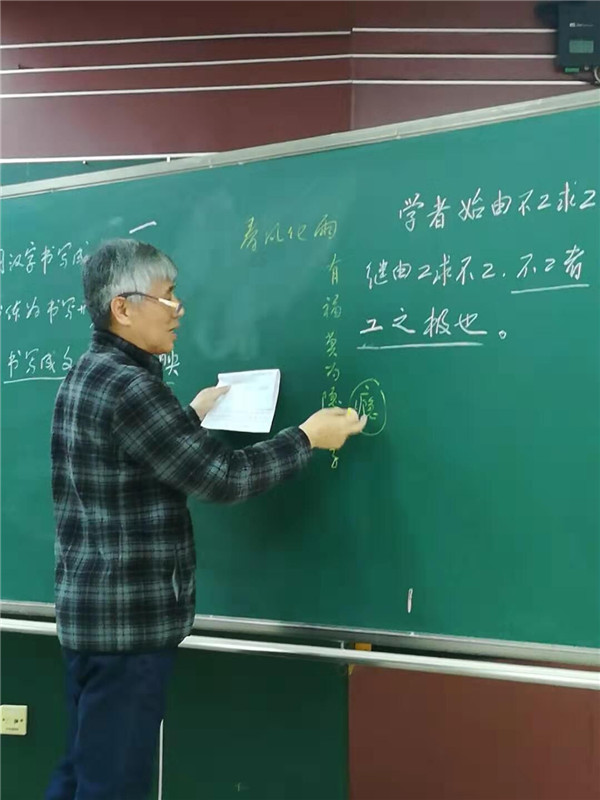 一
汉字书写成
体为书写
书写成 映
春风化雨
有福莫为隐
隐
学者始由不工求工
继由工求不工.不工者
工之极也。